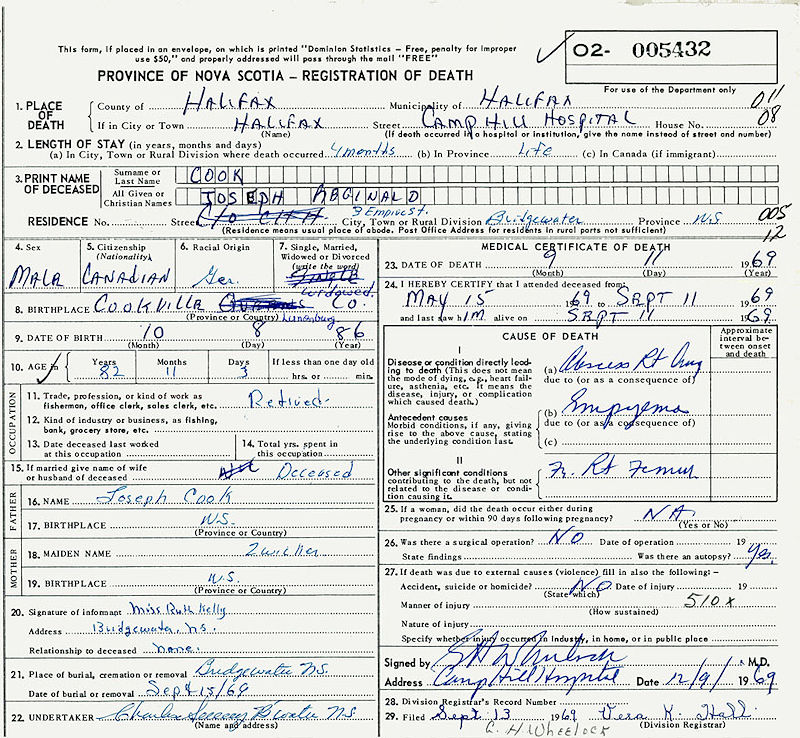 This form, if placed in an envelope, on which is printed "Dominion Statistics – Free, penalty for improper
use $50," and properly addressed will pass through the mail "FREE"
PROVINCE OF NOVA SCOTIA – REGISTRATION OF DEATH
02- 005432
For use of the Department only
011
08
1. PLACE OF DEATH
County of HALIFAX Municipality of HALIFAX
If in City or Town HALIFAX Street CAMP HILL HOSPITAL House No.
(Name) (If death occurred in a hospital or institution, give the name instead of street and number)
2. LENGTH OF STAY (in years, months and days)
(a) In City, Town or Rural Division where death occurred 4 months (b) In Province Life (c) In Canada (if immigrant)
3. PRINT NAME OF DECEASED
Surname or Last Name COOK
All Given or Christian Names JOSEPH REGINALD
RESIDENCE No. Street C/O CITH 3 Empire St. City, Town or Rural Division Bridgewater Province N.S. 005
(Residence means usual place of abode. Post Office Address for residents in rural ports not sufficient) 12
4. Sex
MALE
5. Citizenship (Nationality)
CANADIAN
6. Racial Origin
Ger.
7. Single, Married, Widowed or Divorced (write the word)
SINGLE
Widowed
8. BIRTHPLACE COOKVILLE CO.
(Province or Country) Lunenburg
9. DATE OF BIRTH 10 8 86
(Month) (Day) (Year)
10. AGE in Years 82 Months 11 Days 3 If less than one day old
hrs. or min.
OCCUPATION
11. Trade, profession, or kind of work as fishermon, office clerk, sales clerk, etc. Retired
12. Kind of industry or business, as fishing, bank, grocery store, etc.
13. Date deceased last worked at this occupation
14. Total yrs. spent in this occupation
15. If married give name of wife or husband of deceased Deceased
FATHER
16. NAME Joseph Cook
17. BIRTHPLACE N.S.
(Province or Country)
MOTHER
18. MAIDEN NAME Zwicker
19. BIRTHPLACE N.S.
(Province or Country)
20. Signature of informant Miss Ruth Kelly
Address Bridgewater, N.S.
Relationship to deceased none.
21. Place of burial, cremation or removal Bridgewater N.S.
Date of burial or removal Sept 15/69
22. UNDERTAKER Charles B'water N.S.
(Name and address)
MEDICAL CERTIFICATE OF DEATH
23. DATE OF DEATH 9 11 1969
(Month) (Day) (Year)
24. I HEREBY CERTIFY that I attended deceased from:
MAY 15 1969 to SEPT 11 1969
and last saw him alive on SEPT 11 1969
CAUSE OF DEATH
Approximate interval between onset and death
I
Disease or condition directly leading to death (This does not mean the mode of dying, e.g., heart failure, asthenia, etc. It means the disease, injury, or complication which caused death.)
(a) Abscess Rt Lung
due to (or as a consequence of)
Antecedent causes
Morbid conditions, if any, giving rise to the above cause, stating the underlying condition last.
(b) Empyema
due to (or as a consequence of)
(c)
II
Other significant conditions
contributing to the death, but not related to the disease or condition causing it.
Fr. Rt Femur
25. If a woman, did the death occur either during pregnancy or within 90 days following pregnancy? NA
(Yes or No)
26. Was there a surgical operation? NO Date of operation 19
State findings Was there an autopsy? Yes.
27. If death was due to external causes (violence) fill in also the following:–
Accident, suicide or homicide? NO Date of injury 19
(State which)
Manner of injury 510x
(How sustained)
Nature of injury
Specify whether injury occurred in industry, in home, or in public place
Signed by M.D.
Address Camp Hill Hospital Date 12/9/ 1969
28. Division Registrar's Record Number
29. Filed Sept 13 1969 Vera K. Hall
(Division Registrar)
C. H. Wheelock